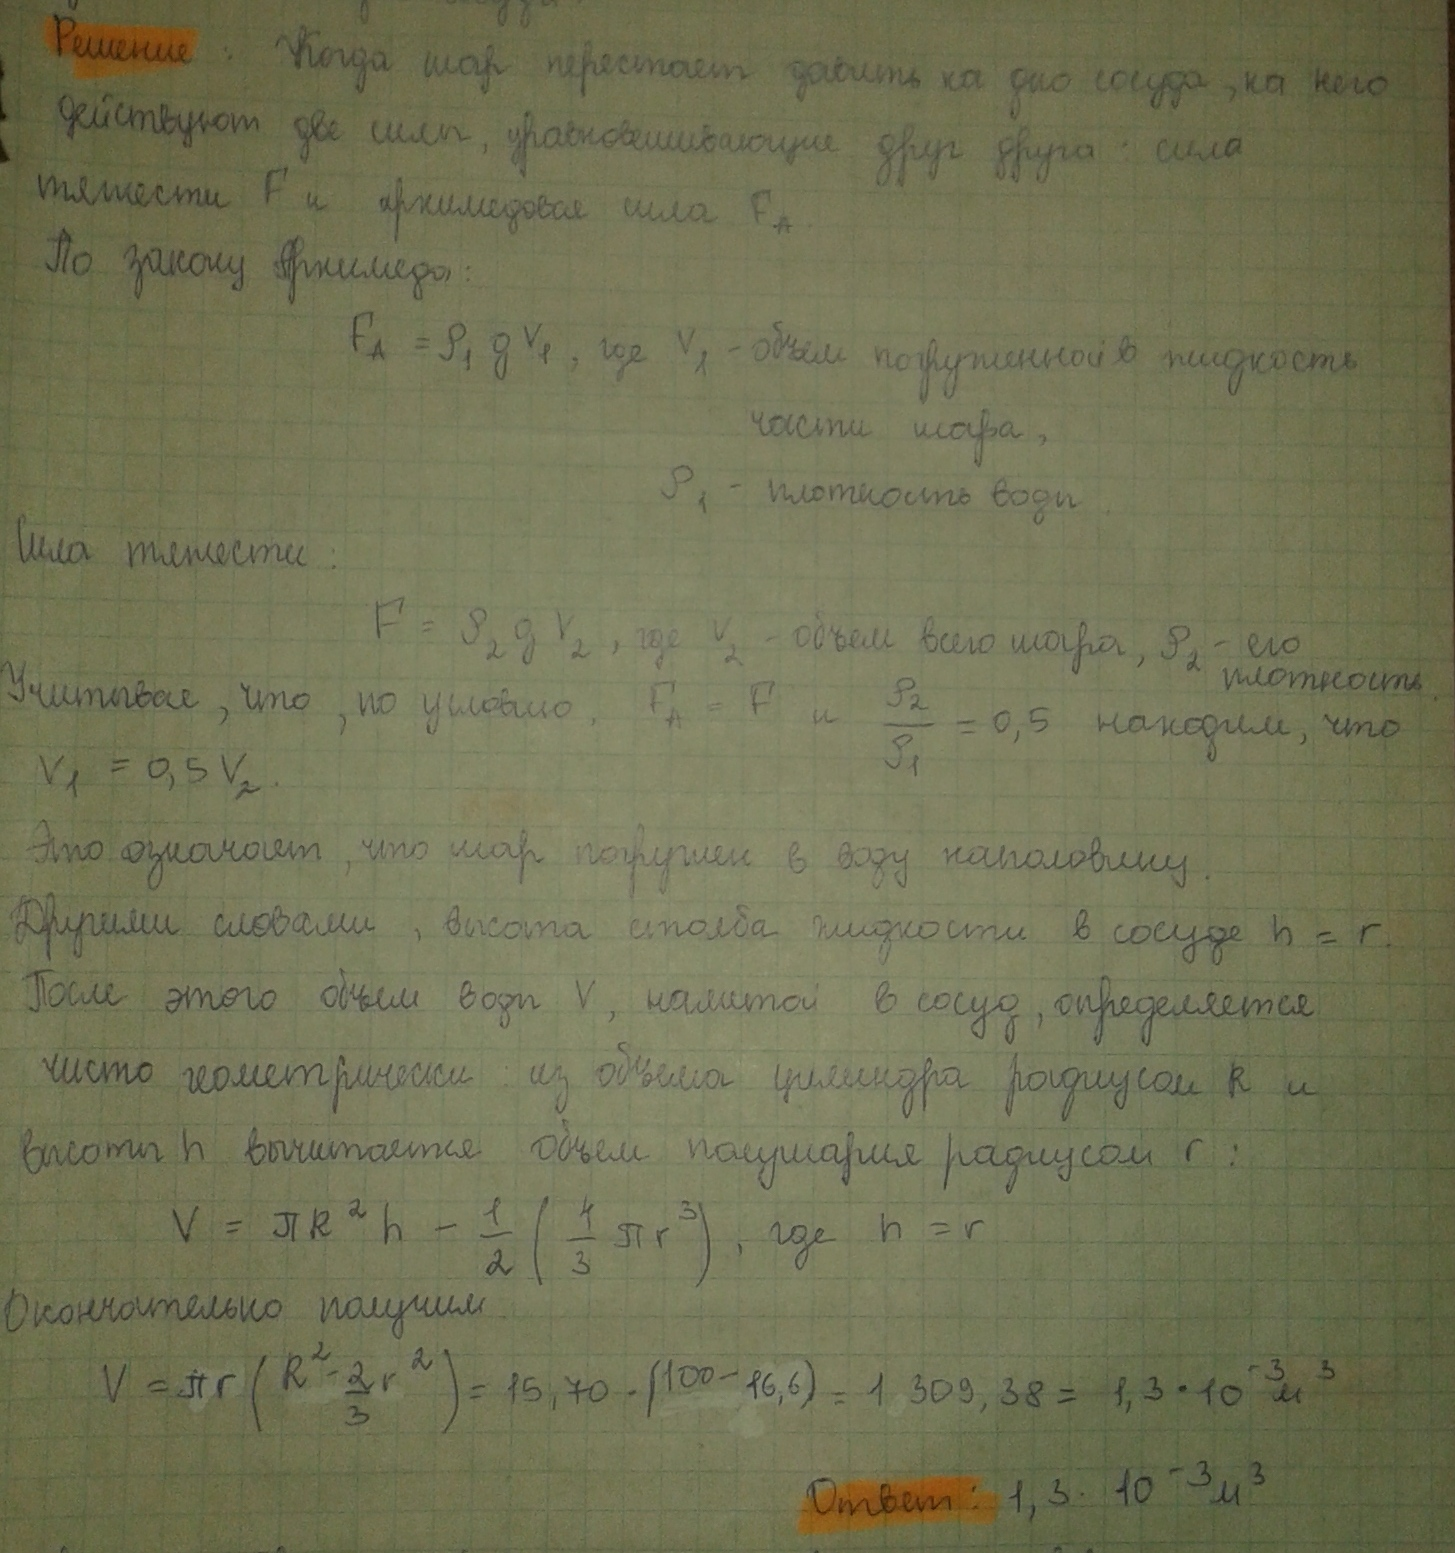 Решение: Когда шар перестает давить на дно сосуда, на него
действуют две силы, уравновешивающие друг друга: сила
тяжести F и архимедовая сила F_A.
По закону Архимеда:
F_A = ρ₁ g V₁, где V₁ - объем погруженной в жидкость
части шара,
ρ₁ - плотность воды.
Сила тяжести:
F = ρ₂ g V₂, где V₂ - объем всего шара, ρ₂ - его
плотность.
Учитывая, что, по условию, F_A = F и ρ₂/ρ₁ = 0,5 находим, что
V₁ = 0,5 V₂.
Это означает, что шар погружен в воду наполовину.
Другими словами, высота столба жидкости в сосуде h = r.
После этого объем воды V, налитой в сосуд, определяется
чисто геометрически: из объема цилиндра радиусом R и
высоты h вычитается объем полушария радиусом r:
V = πR²h - 1/2 (4/3 πr³), где h = r
Окончательно получим
V = πr (R² - 2/3 r²) = 15,70 · (100 - 16,6) = 1 309,38 = 1,3 · 10⁻³ м³
Ответ: 1,3 · 10⁻³ м³